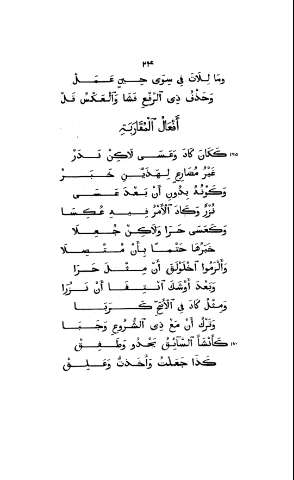 ٢٤
وَمَا لِلَاتَ فِي سِوَى حِينٍ عَمَلْ
وَحَذْفُ ذِي ٱلرَّفْعِ فَشَا وَٱلْعَكْسُ قَلْ
أَفْعَالُ ٱلْمُقَارَبَةِ
١٦٥ كَكَانَ كَادَ وَعَسَى لَاكِنْ نَدَرْ
غَيْرُ مُضَارِعٍ لِهَذَيْنِ خَبَرْ
وَكَوْنُهُ بِدُونِ أَنْ بَعْدَ عَسَى
نَزْرٌ وَكَادَ ٱلْأَمْرُ فِيهِ عُكِسَا
وَكَعَسَى حَرَا وَلَاكِنْ جُعِلَا
خَبَرُهَا حَتْمًا بِأَنْ مُتَّصِلَا
وَأَلْزَمُوا ٱخْلَوْلَقَ أَنْ مِثْلَ حَرَا
وَبَعْدَ أَوْشَكَ ٱنْتِفَا أَنْ نَزُرَا
وَمِثْلُ كَادَ فِي ٱلْأَصَحِّ كَرَبَا
وَتَرْكُ أَنْ مَعَ ذِي ٱلشُّرُوعِ وَجَبَا
١٧٠ كَأَنْشَأَ ٱلسَّائِقُ يَحْدُو وَطَفِقْ
كَذَا جَعَلْتُ وَأَخَذْتُ وَعَلِقْ